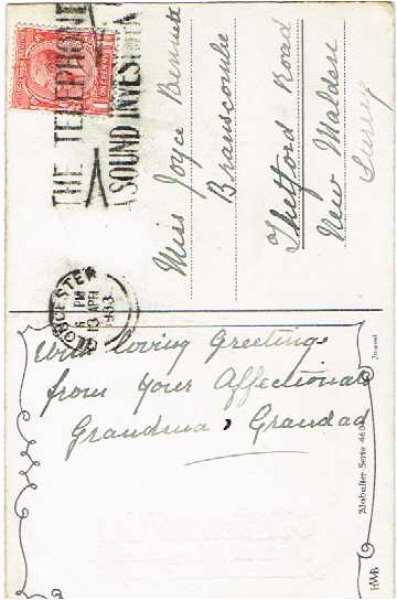 THE TELEPHONE
A SOUND INVESTMENT
ONE PENNY
GLOUCESTER
6 PM
13 APR
1933
Miss Joyce Bennett
Branscombe
Thetford Road
New Malden
Surrey
With loving Greetings
from your Affectionate
Grandma & Grandad
HWB
Serie 46